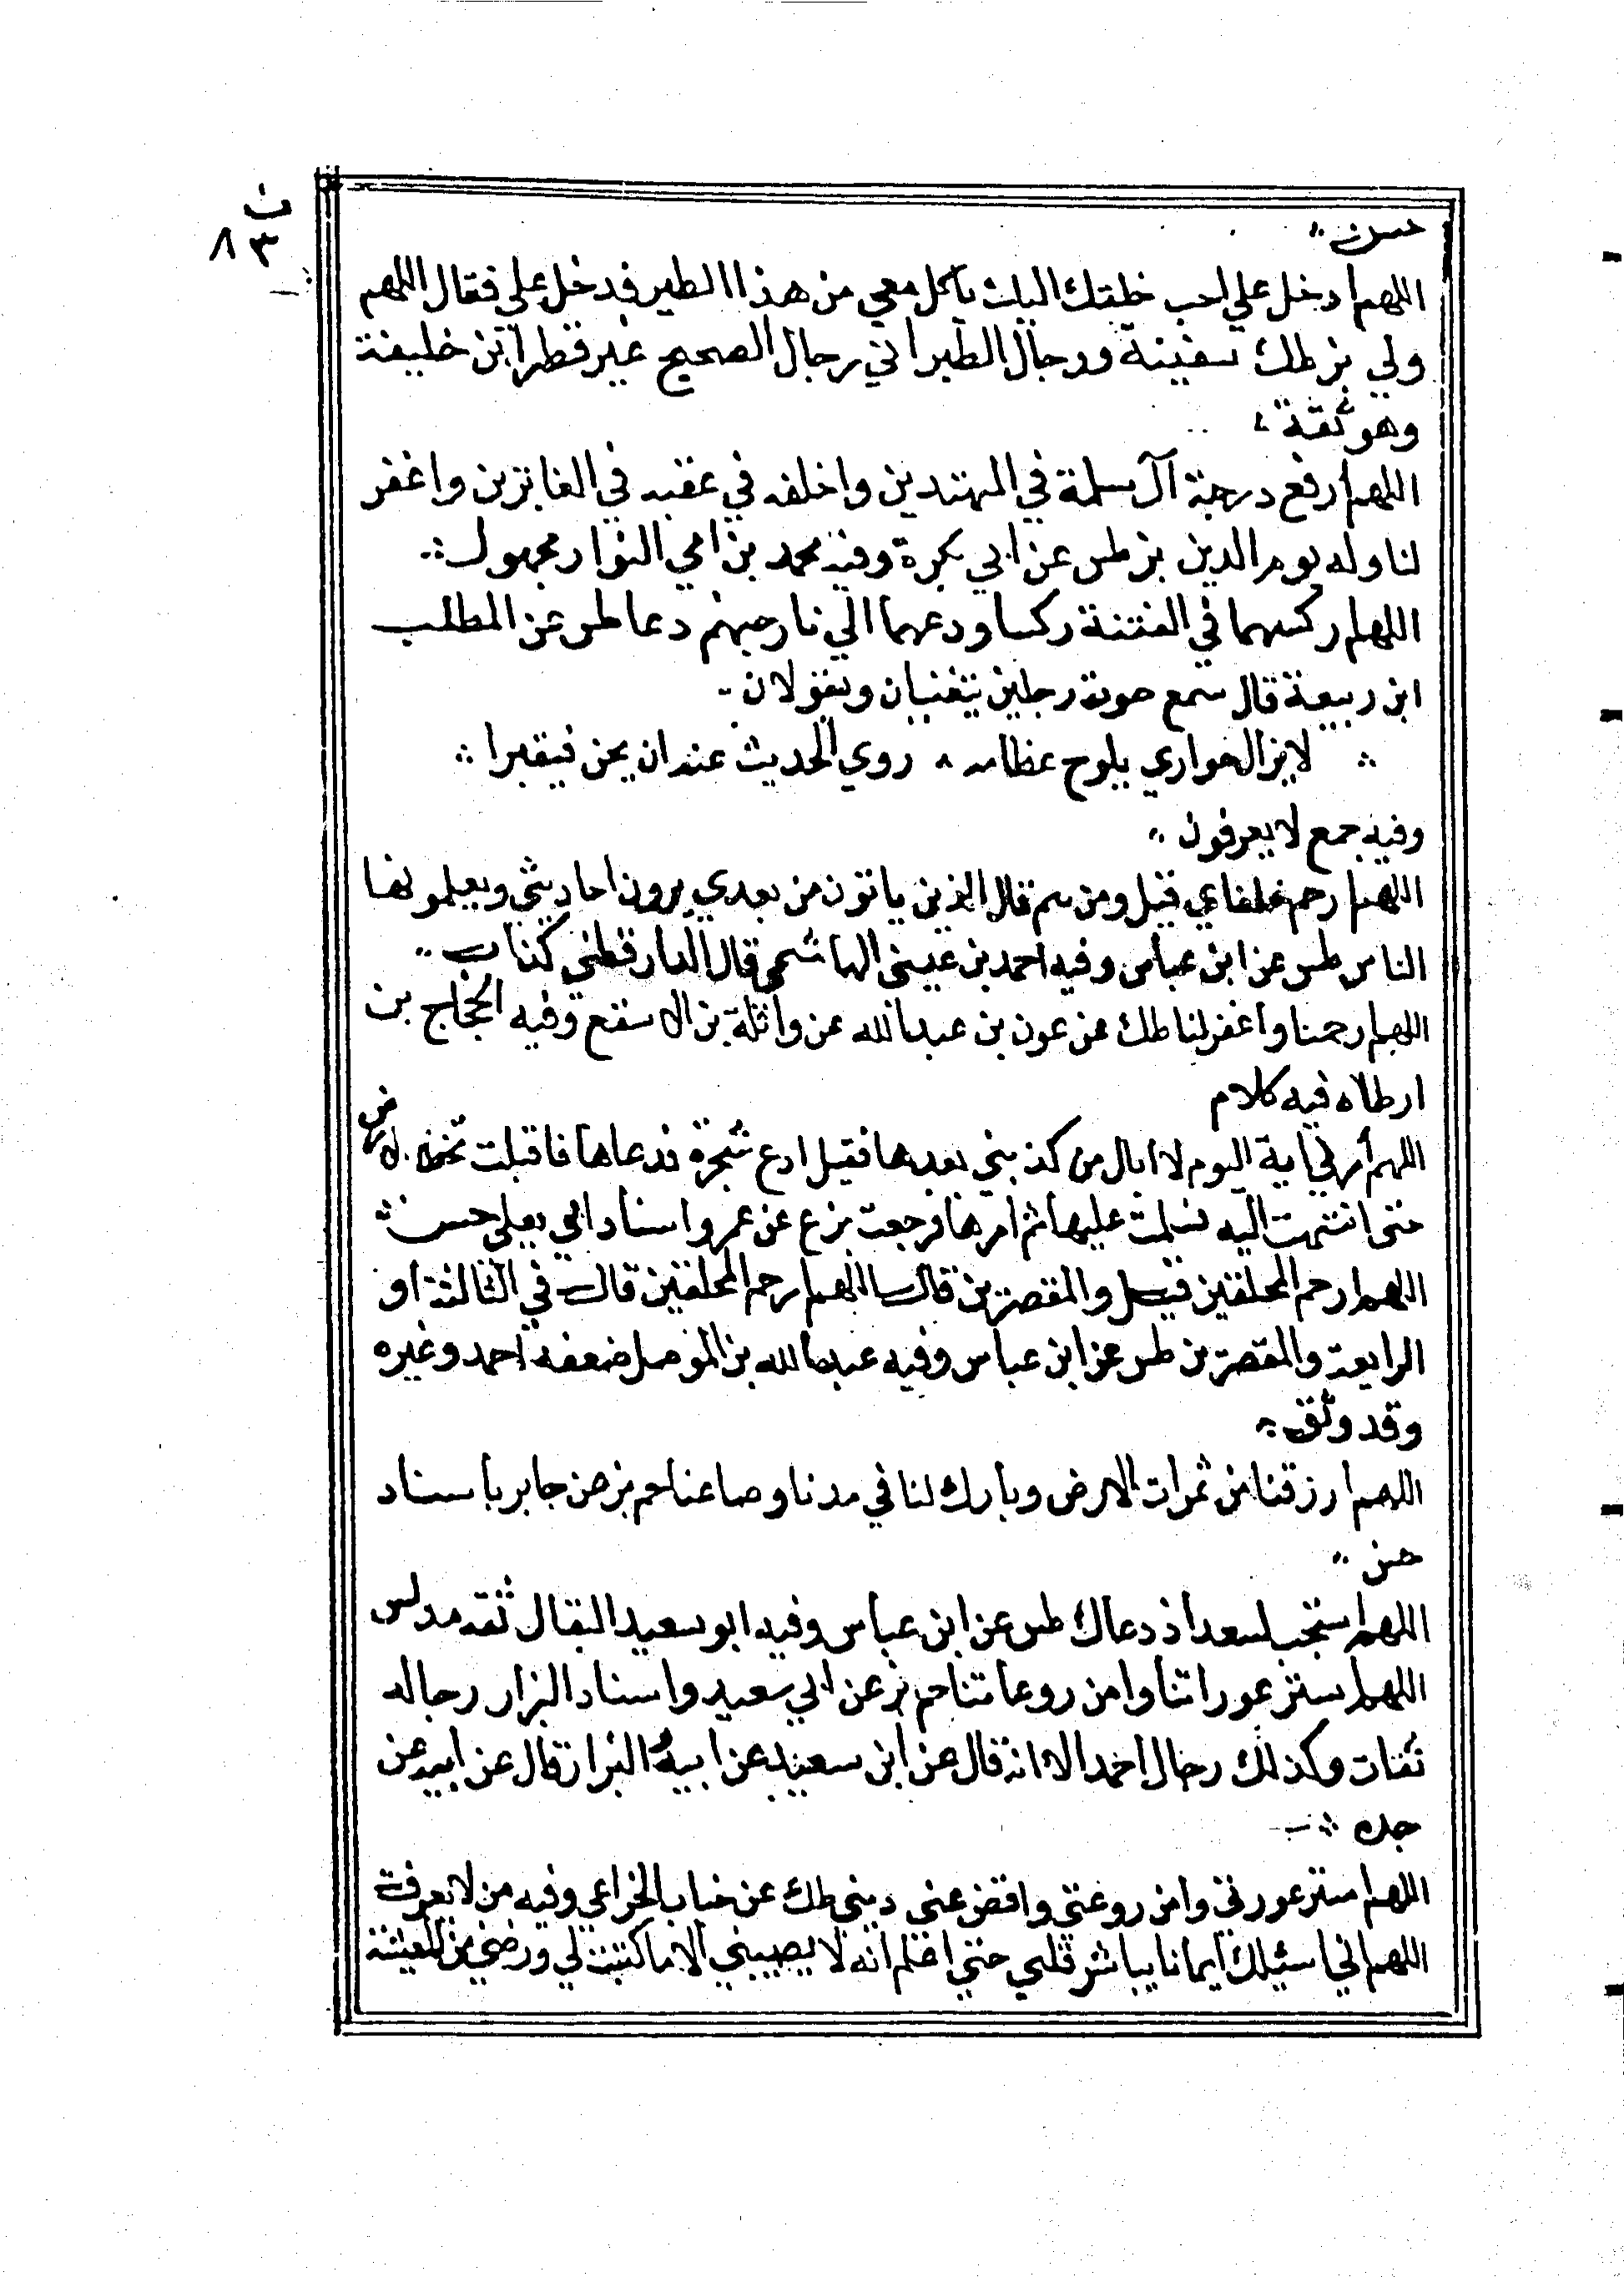 ب
٨٣
حسن
اللهم ادخل علي احب خلقك اليك ياكل معي من هذا الطير فدخل علي فقال اللهم
ولي بز طك سفينة ورجال الطبراني رجال الصحيح غير فطر ابن خليفة
وهو ثقة
اللهم ارفع درجة آل سلمة في المهتدين واخلفه في عقبه في الغابرين واغفر
لنا وله يوم الدين بز طس عن ابي بكرة وفيه محمد بن ابي النوار مجهول
اللهم اركسهما في الفتنة ركسا ودعهما الي نار جهنم دعا طس عن المطلب
ابن ربيعة قال سمع صوت رجلين يتغنيان ويقولان
لا يزال حواري يلوح عظامه روي الحديث عنه ان يحن فيقبرا
وفيه جمع لا يعرفون
اللهم ارحم خلفاي قيل ومن هم قال الذين ياتون من بعدي يروون احاديثي ويعلمونها
الناس طس عن ابن عباس وفيه احمد بن عيسي الهاشمي قال الدارقطني كذاب
اللهم ارحمنا واغفر لنا طك عن عون بن عبد الله عن واثلة بن الاسقع وفيه الحجاج بن
ارطاه فيه كلام
اللهم ارني اية اليوم لا ابال من كذبني بعدها فقيل ادع شجرة فدعاها فاقبلت تخط الارض
حتى انتهت اليه فسلمت عليها ثم امرها فرجعت بز ع عن عمر واسناد ابي يعلى حسن
اللهم ارحم المحلقين قيل والمقصرين قال اللهم ارحم المحلقين قال في الثالثة او
الرابعة والمقصرين طس عن ابن عباس وفيه عبد الله بن الموصل ضعفه احمد وغيره
وقد وثق
اللهم ارزقنا من ثمرات الارض وبارك لنا في مدنا وصاعنا حم بز عن جابر باسناد
حسن
اللهم استجب لسعد اذ دعاك طس عن ابن عباس وفيه ابو سعيد البقال ثقه مدلس
اللهم استر عوراتنا وامن روعاتنا حم بز عن ابي سعيد واسناد البزار رجاله
ثقات وكذلك رجال احمد الا انه قال عن ابن سعيد عن ابيه البزار قال عن ابيه عن
جده
اللهم استر عورتي وامن روعتي واقض عني ديني طك عن خباب الخزاعي وفيه من لا يعرف
اللهم اني اسئلك ايمانا يباشر قلبي حتي اعلم انه لا يصيبني الا ما كتبت لي ورضني من المعيشة